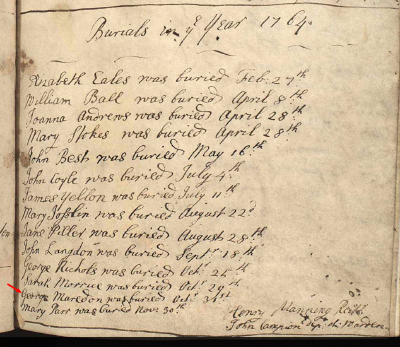 Burials in ye Year 1764.
Elizabeth Eales was buried Feb. 27th
William Ball was buried April 8th
Joanna Andrews was buried April 28th
Mary Stokes was buried April 28th
John Best was buried May 16th
John Coyle was buried July 4th
James Yellon was buried July 11th
Mary Josslin was buried August 22d
Jane Piller was buried August 28th
John Langdon was buried Septr. 18th
George Nichols was buried Octr. 24th
Sarah Morrice was buried Octr. 29th
George Maredon was buried Octr. 31st
Mary Parr was buried Novr. 30th
Henry Manning
John Campion Warden